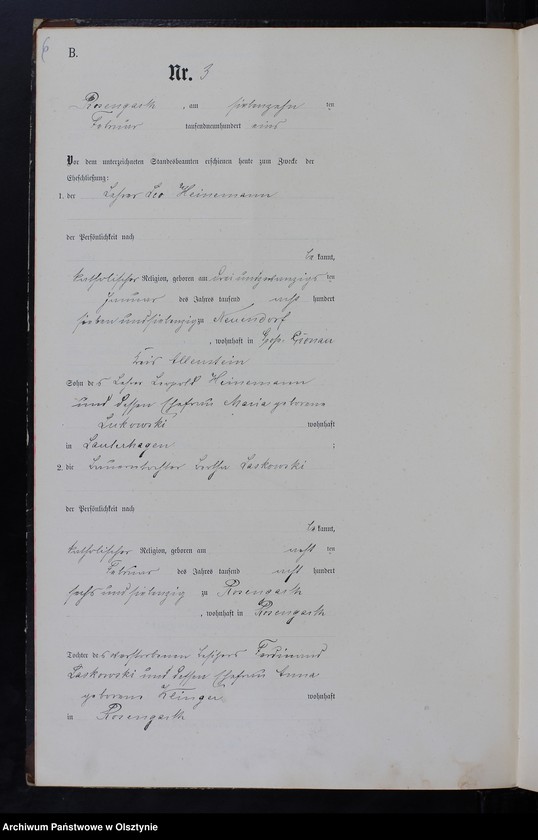 B.
Nr. 3
Rosengarth, am siebenzehnten
Februar tausendneunhundert eins
Vor dem unterzeichneten Standesbeamten erschienen heute zum Zwecke der
Eheschließung:
1. der Lehrer Leo Heinemann
der Persönlichkeit nach
be kannt,
katholischer Religion, geboren am drei und zwanzigs ten
Januar des Jahres tausend acht hundert
sieben und siebenzig zu Neuendorf
, wohnhaft in Groß
Kreis Allenstein
Sohn des Lehrer Leopold Heinemann
und dessen Ehefrau Maria geborene
Lukowski wohnhaft
in Lauterhagen ;
2. die Bauerntochter Bertha Laskowski
der Persönlichkeit nach
be kannt,
katholischer Religion, geboren am acht ten
Februar des Jahres tausend acht hundert
sechs und siebenzig zu Rosengarth
, wohnhaft in Rosengarth
Tochter des verstorbenen Besitzers Ferdinand
Laskowski und dessen Ehefrau Anna
geborene Klinger wohnhaft
in Rosengarth
Archiwum Państwowe w Olsztynie